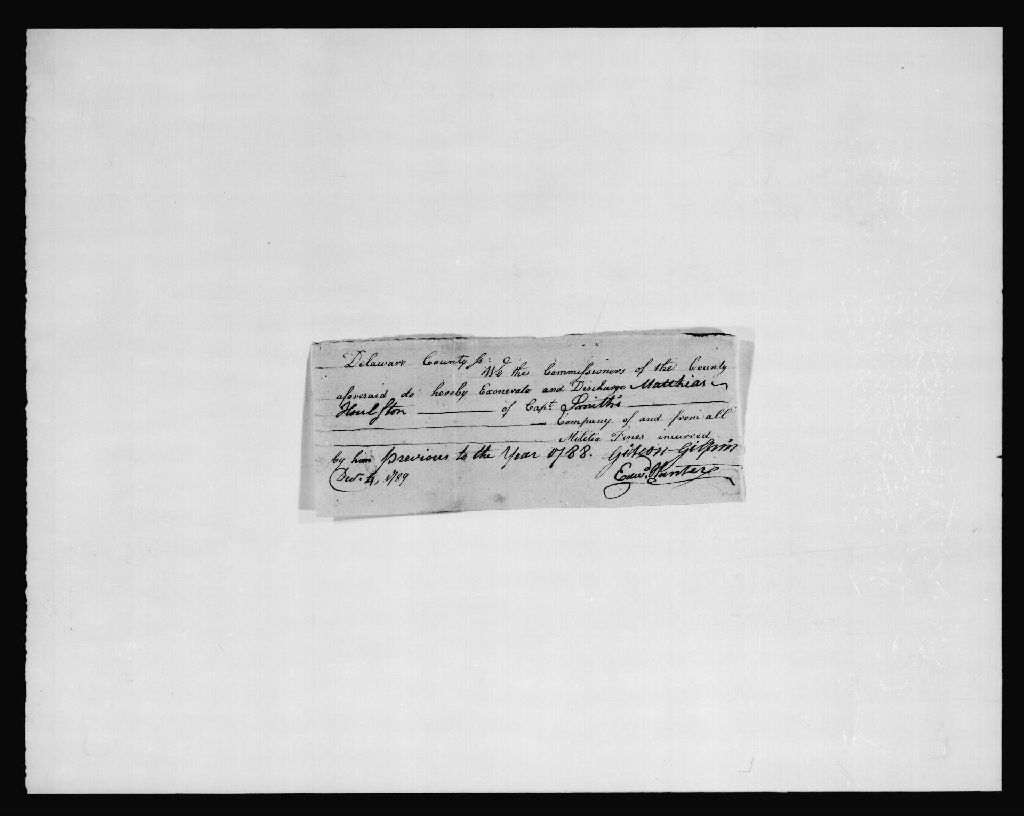 Delaware County ss:
We the Commissioners of the County
aforesaid do hereby Exonerate and Discharge Matthias
Houlston of Capt. Smith's
Company of and from all
Militia Fines incurred
by him previous to the Year 1788. Gideon Gilpin
Decr. 4, 1789 Edwd. Hunter